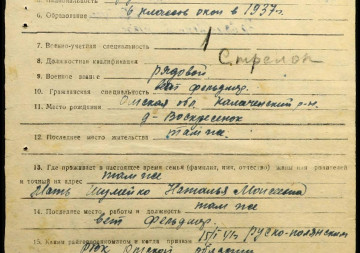 6. Образование 6 классов окон в 1937 г.
7. Военно-учетная специальность
8. Должностная квалификация Стрелок
9. Военное звание рядовой
10. Гражданская специальность вет фельдшер
11. Место рождения Омская обл. Калаченский р-н
д-Воскресенок
12. Последнее место жительства там же
13. Где проживает в настоящее время семья (фамилия, имя, отчество) жены или родителей
и точный их адрес там же
Мать Шумейко Наталья Моисеевна
14. Последнее место работы и должность там же
вет фельдшер
15. Каким райвоенкоматом и когда призван Русско-полянским
РВК Омской области